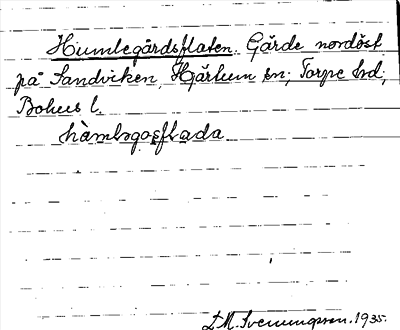 Humlegårdsflaten. Gärde nordöst
på Sandvicken, Hjärtum sn; Torpe hd;
Bohus l.
hàmlsgoṣflada
D.M. Svenungsson. 1935.